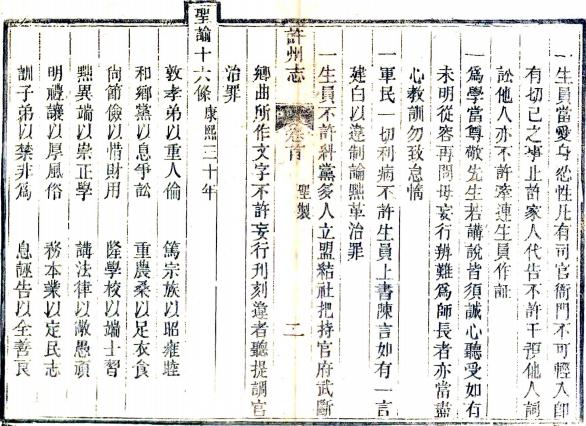 一生員當愛身忍性凡有司官衙門不可輕入即
有切己之事止許家人代告不許干預他人詞
訟他人亦不許牽連生員作証
一為學當尊敬先生若講說皆須誠心聽受如有
未明從容再問毋妄行辨難為師長者亦當盡
心教訓勿致怠惰
一軍民一切利病不許生員上書陳言如有一言
建白以違制論黜革治罪
一生員不許糾黨多人立盟結社把持官府武斷
鄉曲所作文字不許妄行刊刻違者聽提調官
治罪
許州志
卷首
聖製
二
聖諭十六條康熙三十年
敦孝弟以重人倫 篤宗族以昭雍睦
和鄉黨以息爭訟 重農桑以足衣食
尚節儉以惜財用 隆學校以端士習
黜異端以崇正學 講法律以儆愚頑
明禮讓以厚風俗 務本業以定民志
訓子弟以禁非為 息誣告以全善良